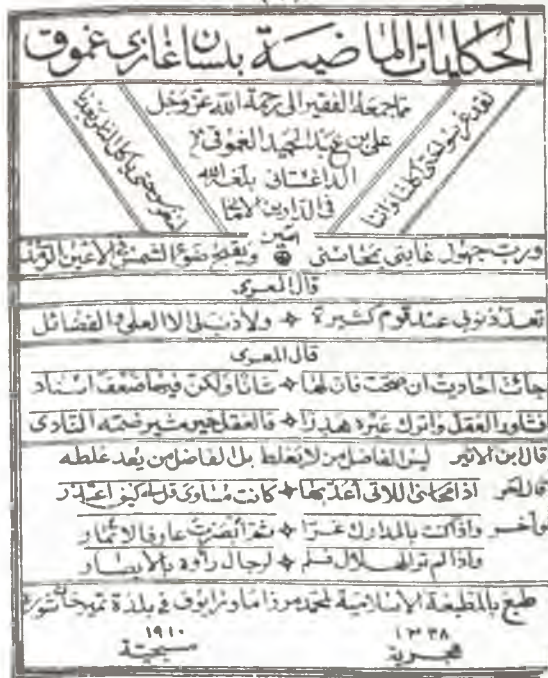 الحكايات الماضية بلسان غازي غموق
مما جمعه الفقير الى رحمة الله عز وجل
على بن عبد الحميد الغموقي
الداغستانى بلغه الله
فى الدارين الامانى
آمين
لقد غرسوا حتى اكلنا واننا
لنغرس حتى يأكل الناس بعدنا
ورب جهول عابنى بمحاسنى ويقبح ضوء الشمس فى الاعين الرمد
قال المعرى
تعد ذنوبى عند قوم كثيرة ولا ذنب لى الا العلى والفضائل
قال المعرى
جائت احاديث ان صحت فان لها شانا ولكن فيها ضعف اسناد
فشاور العقل واترك غيره هدرا فالعقل خير مشير ضمه النادى
قال ابن الاثير ليس الفاضل من لا يغلط بل الفاضل من يعد غلطه
قال آخر اذا محاسنى اللاتى أعد بها كانت مساوى قل لى كيف اعتذر
وآخر واذا كنت بالمدارك غرا ثم ابصرت عارفا لا تمار
واذا لم تر الهلال فسلم لرجال رأوه بالابصار
طبع بالمطبعة الاسلامية لمحمد ميرزا ماورايوف فى بلدة تميرخان شوره
١٣٢٨ ١٩١٠
هجرية مسيحية